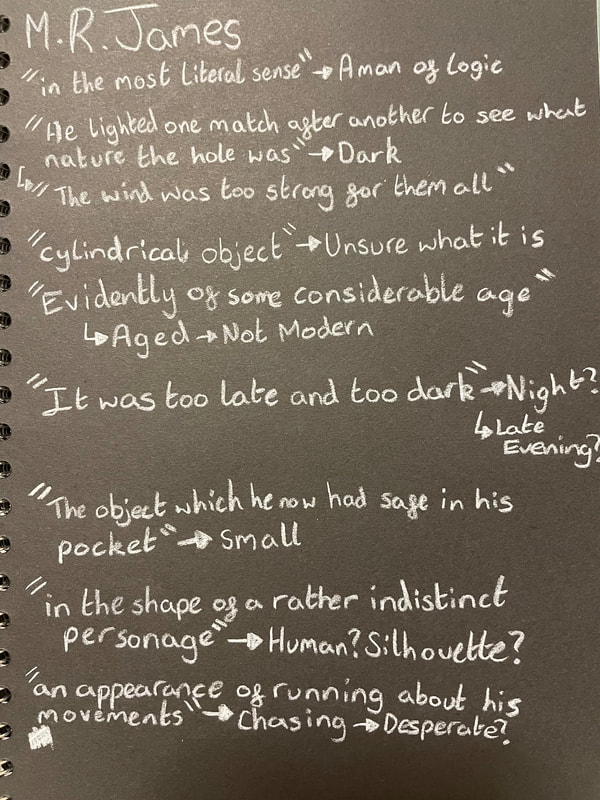 M.R.James
"in the most literal sense" → A man of logic
"He lighted one match after another to see what
nature the hole was" → Dark
↳ "The wind was too strong for them all"
"cylindrical object" → Unsure what it is
"Evidently of some considerable age"
↳ Aged → Not Modern
"It was too late and too dark" → Night?
↳ Late
Evening?
"The object which he now had safe in his
pocket" → Small
"in the shape of a rather indistinct
personage" → Human? Silhouette?
"an appearance of running about his
movements" → Chasing → Desperate?